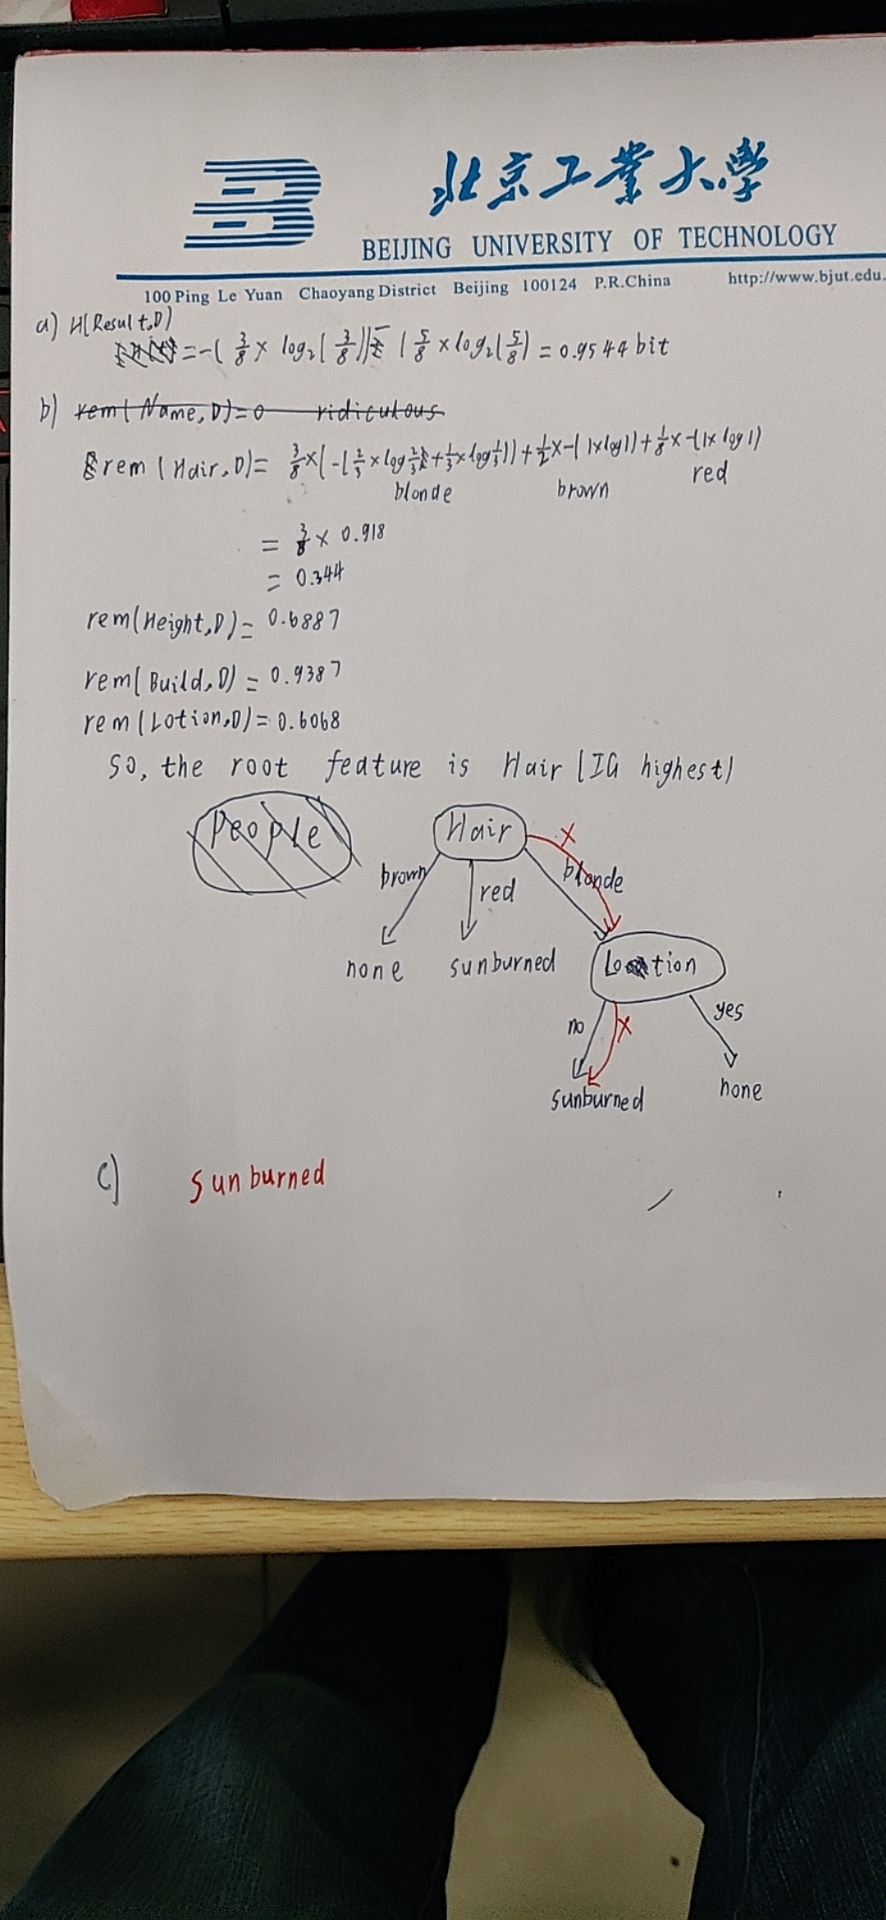 北京工業大學
BEIJING UNIVERSITY OF TECHNOLOGY
100 Ping Le Yuan Chaoyang District Beijing 100124 P.R.China http://www.bjut.edu.
a) H(Result,D)
= -( 3/8 × log₂( 3/8 )) - ( 5/8 × log₂( 5/8 ) = 0.9544 bit
b) rem( Name, D)=0 ridiculous
rem ( Hair, D)= 3/8×( -( 2/3 ×log 2/3 + 1/3 × log 1/3 )) + 1/2 × -( 1×log1) + 1/8 × -(1× log 1)
blonde brown red
= 3/8 × 0.918
= 0.344
rem(Height,D)= 0.6887
rem( Build, D) = 0.9387
rem (Lotion,D)= 0.6068
So, the root feature is Hair (IG highest)
People Hair
x
brown red blonde
none sunburned Lotion
no x yes
sunburned none
c) sunburned